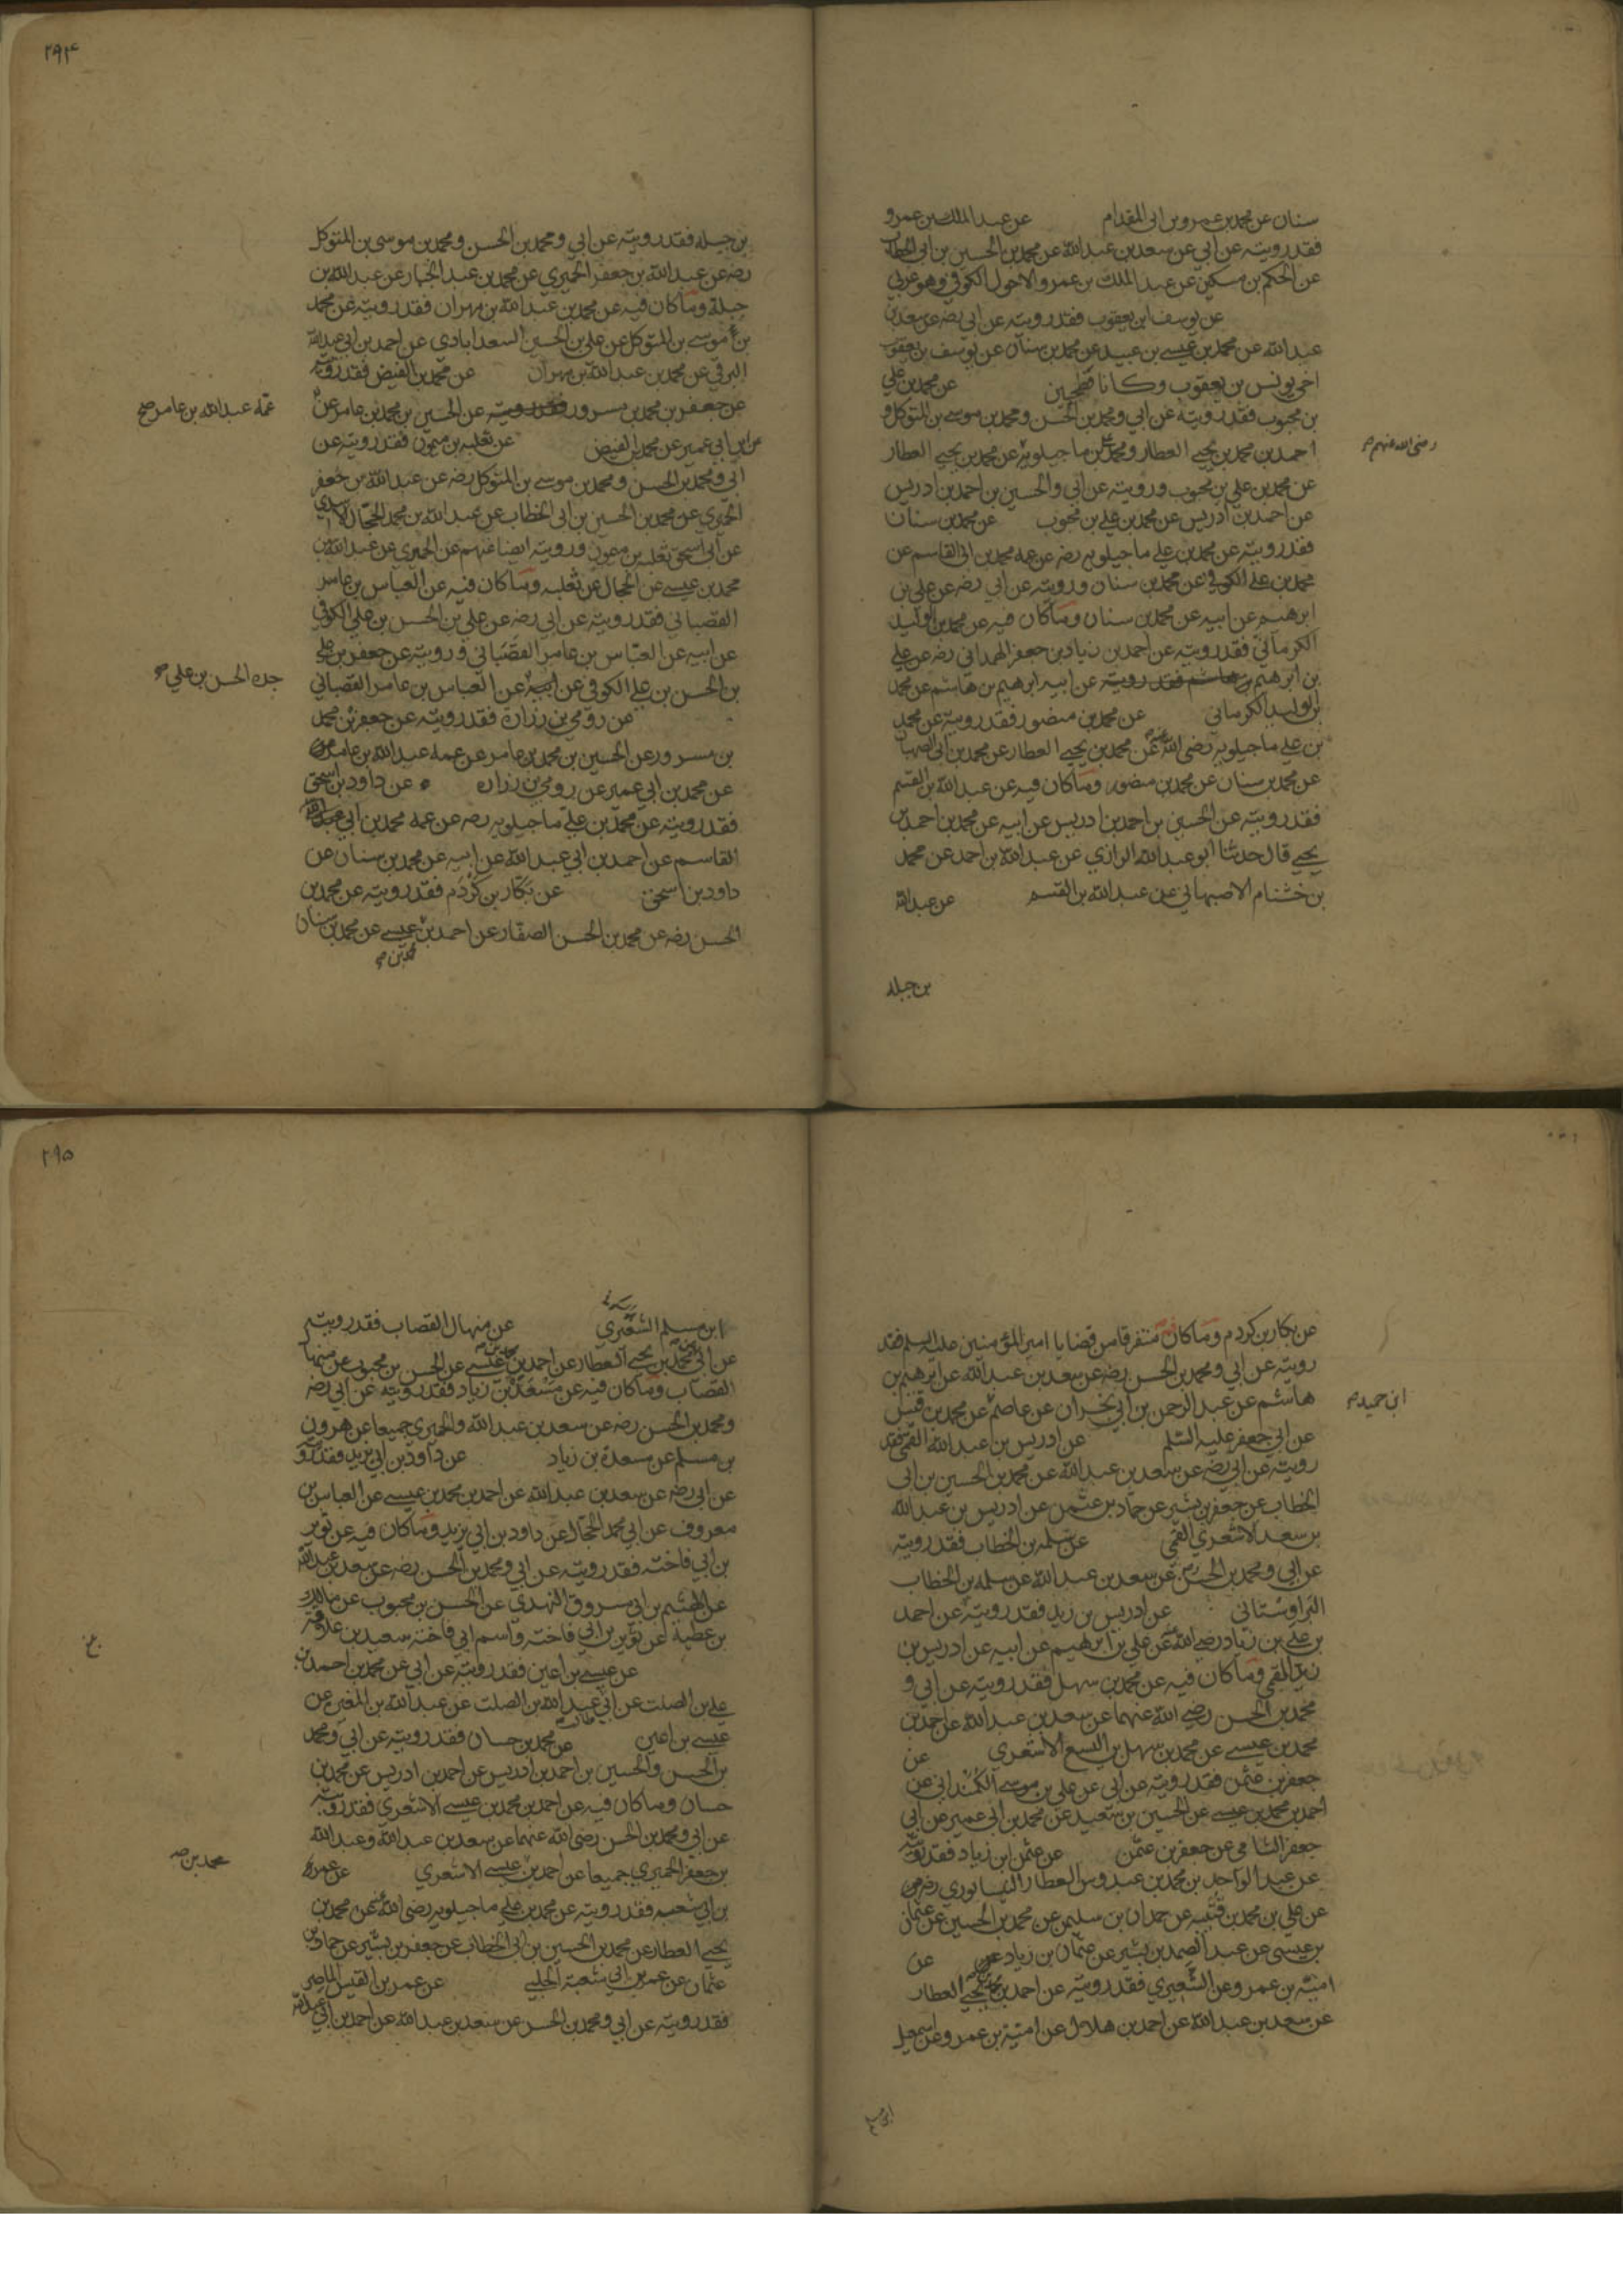 سنان عن محمد بن عمرو بن ابى المقدام عن عبد الملك بن عمرو
فقد رويته عن ابي عن سعد بن عبد الله عن محمد بن الحسين بن ابى الخطاب
عن الحكم بن مسكين عن عبد الملك بن عمرو الاحول الكوفي وهو عربي
عن يوسف ابن يعقوب فقد رويته عن ابي رضه عن سعد بن
عبد الله عن محمد بن عيسے بن عبيد عن محمد بن سنان عن يوسف بن يعقوب
اخى يونس بن يعقوب وكانا فطحيين عن محمد بن علي
بن محبوب فقد رويته عن ابي ومحمد بن الحسن ومحمد بن موسے بن المتوكل و
احمد بن محمد بن يحيے العطار ومحمد بن علي ماجيلويه عن محمد بن يحيے العطار
رضى الله عنهم
عن محمد بن علي بن محبوب ورويته عن ابي والحسين بن احمد بن ادريس
عن احمد بن ادريس عن محمد بن علے بن محبوب عن محمد بن سنان
فقد رويته عن محمد بن علے ماجيلويه رضه عن عمه محمد بن ابى القاسم عن
محمد بن علے الكوفي عن محمد بن سنان ورويته عن ابي رضه عن علي بن
ابرهيم عن ابيه عن محمد بن سنان وما كان فيه عن محمد بن الوليد
الكرماني فقد رويته عن احمد بن زياد بن جعفر الهمداني رضه عن علے
بن ابرهيم بن هاشم فقد رويته عن ابيه ابرهيم بن هاشم عن محمد
بن الوليد الكرماني عن محمد بن منصور فقد رويته عن محمد
بن علے ماجيلويه رضى الله عنه عن محمد بن يحيے العطار عن محمد بن ابى الصهبان
عن محمد بن سنان عن محمد بن منصور وما كان فيه عن عبد الله بن القسم
فقد رويته عن الحسين بن احمد بن ادريس عن ابيه عن محمد بن احمد بن
يحيے قال حدثنا ابو عبد الله الرازي عن عبد الله بن احمد عن محمد
بن خشنام الاصبهاني عن عبد الله بن القسم عن عبد الله
بن جبله
٢٩٤
بن جبله فقد رويته عن ابي ومحمد بن الحسن ومحمد بن موسى بن المتوكل
رضه عن عبد الله بن جعفر الحميري عن محمد بن عبد الجبار عن عبد الله بن
جبلة وما كان فيه عن محمد بن عبد الله بن مهران فقد رويته عن محمد
بن موسے بن المتوكل عن علي بن الحسين السعدابادي عن احمد بن ابي عبد الله
البرقي عن محمد بن عبد الله بن مهران عن محمد بن الفيض فقد رويته
عن جعفر بن محمد بن مسرور فقد رويته عن الحسين بن محمد بن عامر عن
عمه عبد الله بن عامر صح
عن ابن ابي عمير عن محمد بن الفيض عن ثعلبه بن ميمون فقد رويته عن
ابي ومحمد بن الحسن ومحمد بن موسے بن المتوكل رضه عن عبد الله بن جعفر
الحميري عن محمد بن الحسين بن ابى الخطاب عن عبد الله بن محمد الحجال الاسدي
عن ابي اسحق ثعلبه بن ميمون ورويته ايضا عنهم عن الحميري عن عبد الله بن
محمد بن عيسے عن الحجال عن ثعلبه وما كان فيه عن العباس بن عامر
القصباني فقد رويته عن ابي رضه عن علي بن الحسن بن علي الكوفي
عن ابيه عن العباس بن عامر القصباني ورويته عن جعفر بن علے
بن الحسن بن علے الكوفي عن ابيه عن العباس بن عامر القصباني
جده الحسن بن علي صح
عن رومي بن زرارة فقد رويته عن جعفر بن محمد
بن مسرور عن الحسين بن محمد بن عامر عن عمه عبد الله بن عامر
عن محمد بن ابي عمير عن رومي بن زراره عن داود بن اسحق
فقد رويته عن محمد بن علے ماجيلويه رضه عن عمه محمد بن ابي
القاسم عن احمد بن ابي عبد الله عن ابيه عن محمد بن سنان عن
داود بن اسحق عن بكار بن كردم فقد رويته عن محمد بن
الحسن رضه عن محمد بن الحسن الصفار عن احمد بن عيسے عن محمد بن سنان
محمد بن صح
عن بكار بن كردم وما كان فيه متفرقا من قضايا امير المؤمنين عليه السلم فقد
رويته عن ابي ومحمد بن الحسن رضه عن سعد بن عبد الله عن ابرهيم بن
هاشم عن عبد الرحمن بن ابي نجران عن عاصم عن محمد بن قيس
ابن حميد صح
عن ابي جعفر عليه السلم عن ادريس بن عبد الله القمي فقد
رويته عن ابي رضه عن سعد بن عبد الله عن محمد بن الحسين بن ابى
الخطاب عن جعفر بن بشير عن حماد بن عثمن عن ادريس بن عبد الله
بن سعد الاشعري القمى عن سلمه بن الخطاب فقد رويته
عن ابي ومحمد بن الحسن رضه عن سعد بن عبد الله عن سلمه بن الخطاب
البراوستاني عن ادريس بن زيد فقد رويته عن احمد
بن علي بن زياد رضي الله عنه عن علي بن ابرهيم عن ابيه عن ادريس بن
زيد القمي وما كان فيه عن محمد بن سهل فقد رويته عن ابي و
محمد بن الحسن رضي الله عنهما عن سعد بن عبد الله عن احمد بن
محمد بن عيسے عن محمد بن سهل بن اليسع الاشعري عن
جعفر بن عثمن فقد رويته عن ابى عن علي بن موسے الكمنداني عن
احمد بن محمد بن عيسے عن الحسين بن سعيد عن محمد بن ابى عمير عن ابي
جعفر الشامي عن جعفر بن عثمن عن عثمن ابن زياد فقد رويته
عن عبد الواحد بن محمد بن عبدوس العطار النيسابوري رضه
عن علي بن محمد بن قتيبه عن حمدان بن سليمن عن محمد بن الحسين عن عثمان
بن عيسى عن عبد الصمد بن بشير عن عثمان بن زياد عن
امية بن عمرو عن الشعيري فقد رويته عن احمد بن محمد بن يحيے العطار
عن سعد بن عبد الله عن احمد بن هلال عن امية بن عمرو عن اسمعيل
ابن مسلم
٢٩٥
ابن مسلم الشعيري عن منهال القصاب فقد رويته
عن احمد بن محمد بن يحيے العطار عن احمد بن عيسے عن الحسن بن محبوب عن منهال
القصاب وما كان فيه عن مسعدة بن زياد فقد رويته عن ابي رضه
ومحمد بن الحسن رضه عن سعد بن عبد الله والحميري جميعا عن هرون
بن مسلم عن مسعدة بن زياد عن داود بن ابي يزيد فقد رويته
عن ابي رضه عن سعد بن عبد الله عن احمد بن محمد بن عيسے عن العباس بن
معروف عن ابي محمد الحجال عن داود بن ابي يزيد وما كان فيه عن ثوير
بن ابي فاخته فقد رويته عن ابي ومحمد بن الحسن رضه عن سعد بن عبد الله
عن الهيثم بن ابي مسروق النهدي عن الحسن بن محبوب عن مالك
بن عطية عن ثوير بن ابي فاخته واسم ابي فاخته سعيد بن علاقة
عن عيسے بن اعين فقد رويته عن ابي عن محمد بن احمد بن
علے بن الصلت عن ابي عبد الله بن الصلت عن عبد الله بن المغيره عن
عيسے بن اعين عن محمد بن حسان فقد رويته عن ابي ومحمد
بن الحسن والحسين بن احمد بن ادريس عن احمد بن ادريس عن محمد بن
حسان وما كان فيه عن احمد بن محمد بن عيسے الاشعري فقد رويته
عن ابي ومحمد بن الحسن رضى الله عنهما عن سعد بن عبد الله وعبد الله
بن جعفر الحميري جميعا عن احمد بن عيسے الاشعري عن عمر
محمد بن صح
بن ابي شعبه فقد رويته عن محمد بن علے ماجيلويه رضى الله عنه عن محمد بن
يحيے العطار عن محمد بن الحسين بن ابى الخطاب عن جعفر بن بشير عن حماد بن
عثمان عن عمر بن ابي شعبة الحلبي عن عمر بن القيس الماصر
فقد رويته عن ابي ومحمد بن الحسن عن سعد بن عبد الله عن احمد بن ابي عبد الله